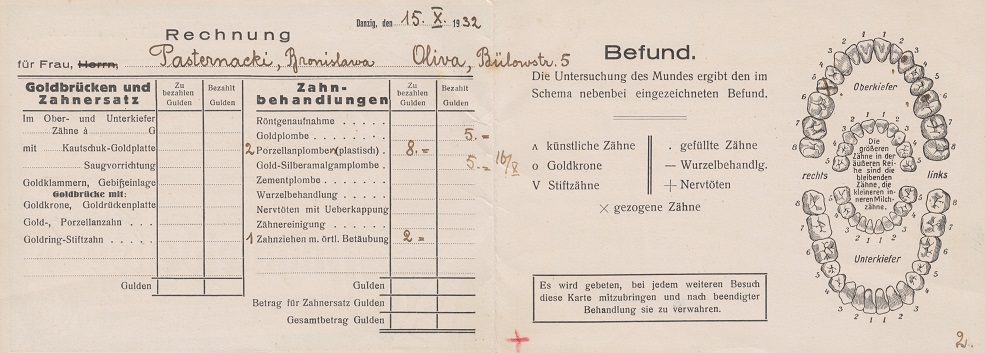 Danzig, den 15. X. 1932
Rechnung
für Frau, Herrn, Pasternacki, Bronislawa Oliva, Bülowstr. 5
Goldbrücken und Zahnersatz
Zu bezahlen Gulden
Bezahlt Gulden
Im Ober- und Unterkiefer
Zähne à G
mit Kautschuk-Goldplatte
Saugvorrichtung
Goldklammern, Gebißeinlage
Goldbrücke mit:
Goldkrone, Goldrückenplatte
Gold-, Porzellanzahn
Goldring-Stiftzahn
Gulden
Zahn-
behandlungen
Zu bezahlen Gulden
Bezahlt Gulden
Röntgenaufnahme
Goldplombe 5.=
2 Porzellanplomben (plastisch) 8.=
Gold-Silberamalgamplombe 5.= 16/X
Zementplombe
Wurzelbehandlung
Nervtöten mit Ueberkappung
Zähnereinigung
1 Zahnziehen m. örtl. Betäubung 2=
Gulden
Betrag für Zahnersatz Gulden
Gesamtbetrag Gulden
Befund.
Die Untersuchung des Mundes ergibt den im
Schema nebenbei eingezeichneten Befund.
ʌ künstliche Zähne
o Goldkrone
V Stiftzähne
. gefüllte Zähne
— Wurzelbehandlg.
+ Nervtöten
× gezogene Zähne
Es wird gebeten, bei jedem weiteren Besuch
diese Karte mitzubringen und nach beendigter
Behandlung sie zu verwahren.
Oberkiefer
rechts
links
Die
größeren
Zähne in der
äußeren Rei-
he sind die
bleibenden
Zähne, die
kleineren in-
neren Milch-
zähne.
Unterkiefer
2.